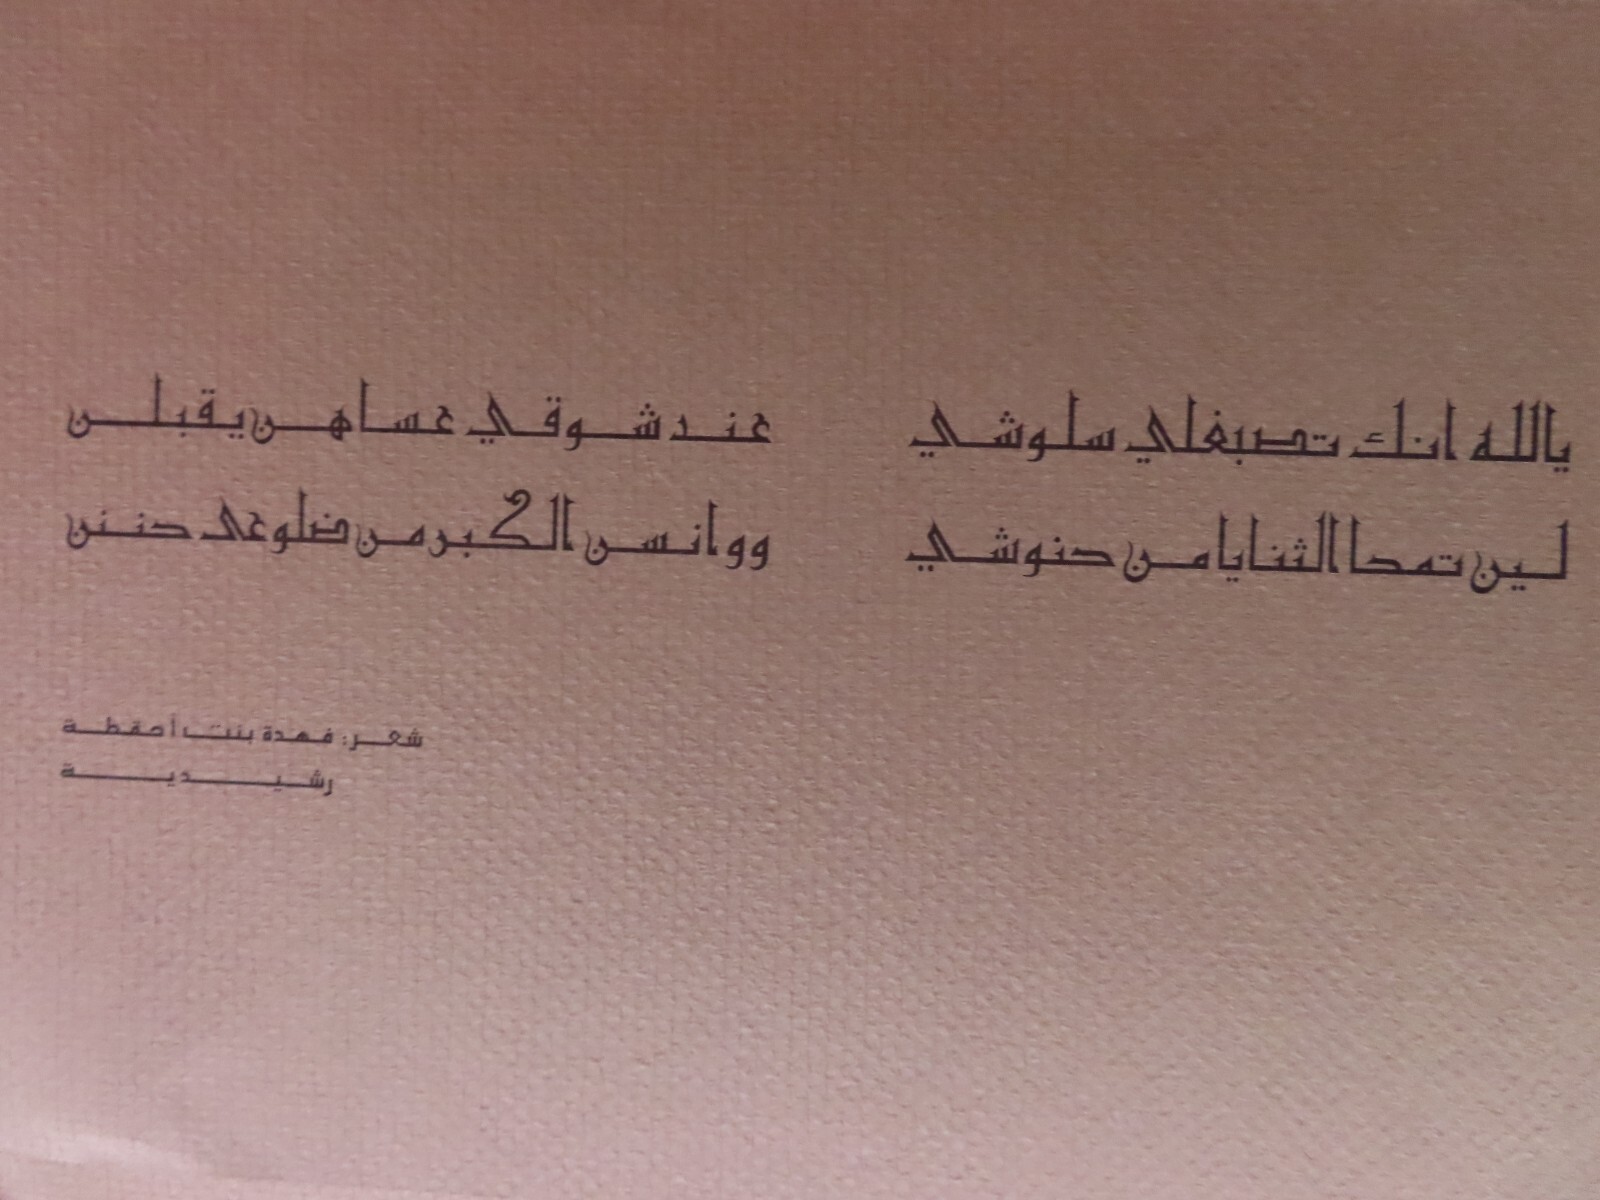 ياالله انك تصبغلي سلوشي عند شوقي عساهن يقبلن
لين تمحا الثنايا من حنوشي ووانسن الكبر من ضلوعي حنن
شعر: فهدة بنت أحقطة
رشيدية